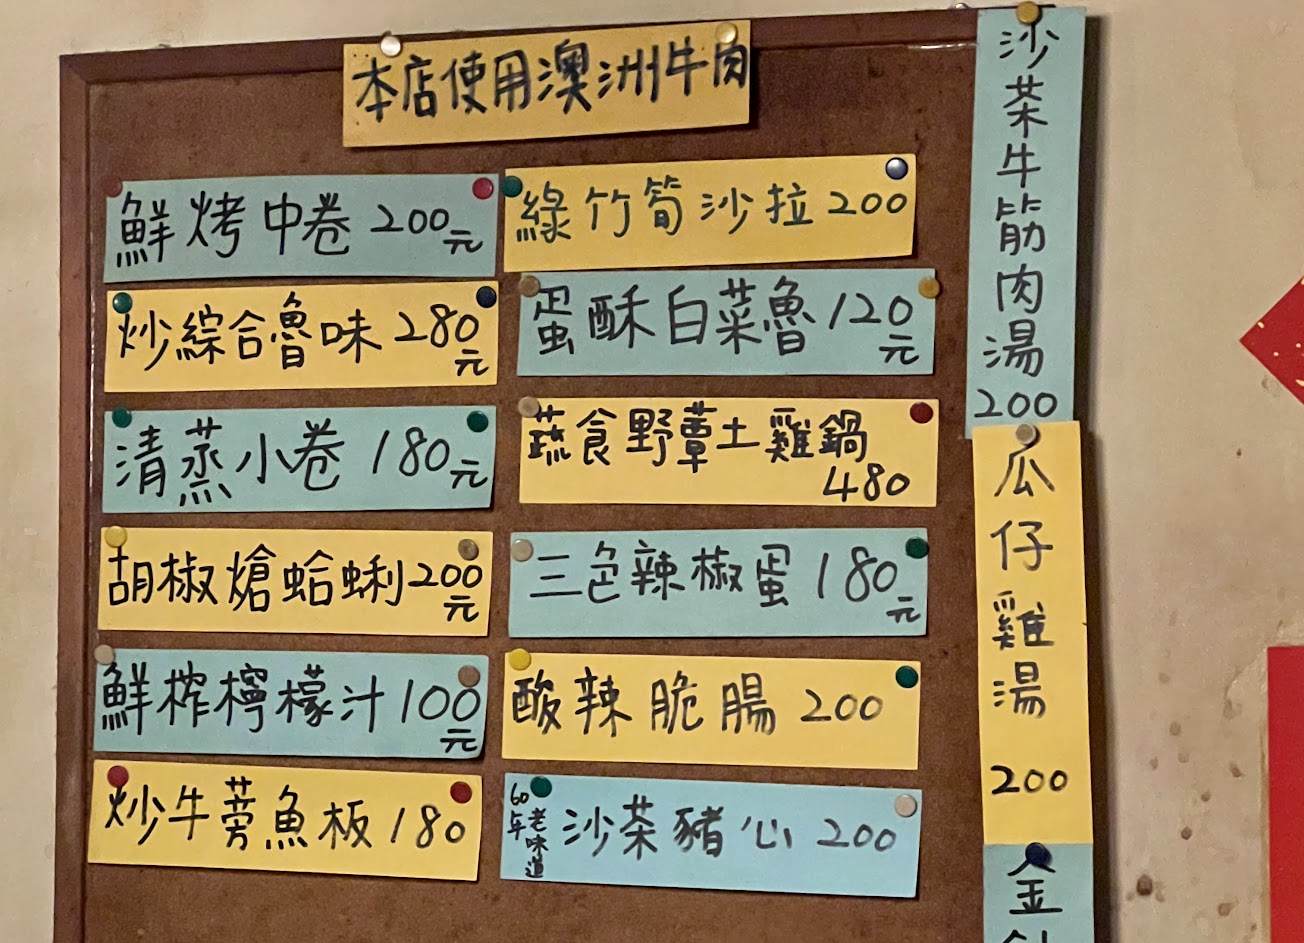 本店使用澳洲牛肉
鮮烤中卷 200元
炒綜合魯味 280元
清蒸小卷 180元
胡椒熗蛤蜊 200元
鮮榨檸檬汁 100元
炒牛蒡魚板 180
綠竹筍沙拉 200
蛋酥白菜魯 120元
蔬食野蕈土雞鍋
480
三色辣椒蛋 180元
酸辣脆腸 200
60年
老味道
沙茶豬心 200
沙茶牛筋肉湯
200
瓜仔雞湯
200
金